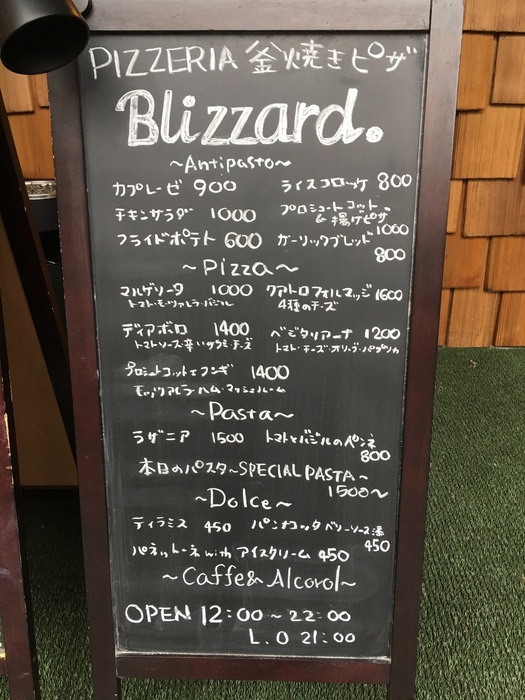 PIZZERIA 釜焼きピザ
Blizzard.
~Antipasto~
カプレーゼ 900 ライスコロッケ 800
チキンサラダ 1000 プロシュートコット & 揚げピザ 1000
フライドポテト 600 ガーリックブレッド 800
~Pizza~
マルゲリータ 1000 クアトロフォルマッジ 1600
トマト・モッツァレラ・バジル 4種のチーズ
ディアボロ 1400 ベジタリアーナ 1200
トマトソース・辛いサラミ・チーズ トマト・チーズ・オリーブ・パプリカ
プロシュートコットエフンギ 1400
モッツアレラ・ハム・マッシュルーム
~Pasta~
ラザニア 1500 トマトとバジルのペンネ 800
本日のパスタ~SPECIAL PASTA~
1500~
~Dolce~
ティラミス 450 パンナコッタベリーソース添 450
パネットーネ with アイスクリーム 450
~Caffe & Alcorol~
OPEN 12:00~22:00
L.O 21:00